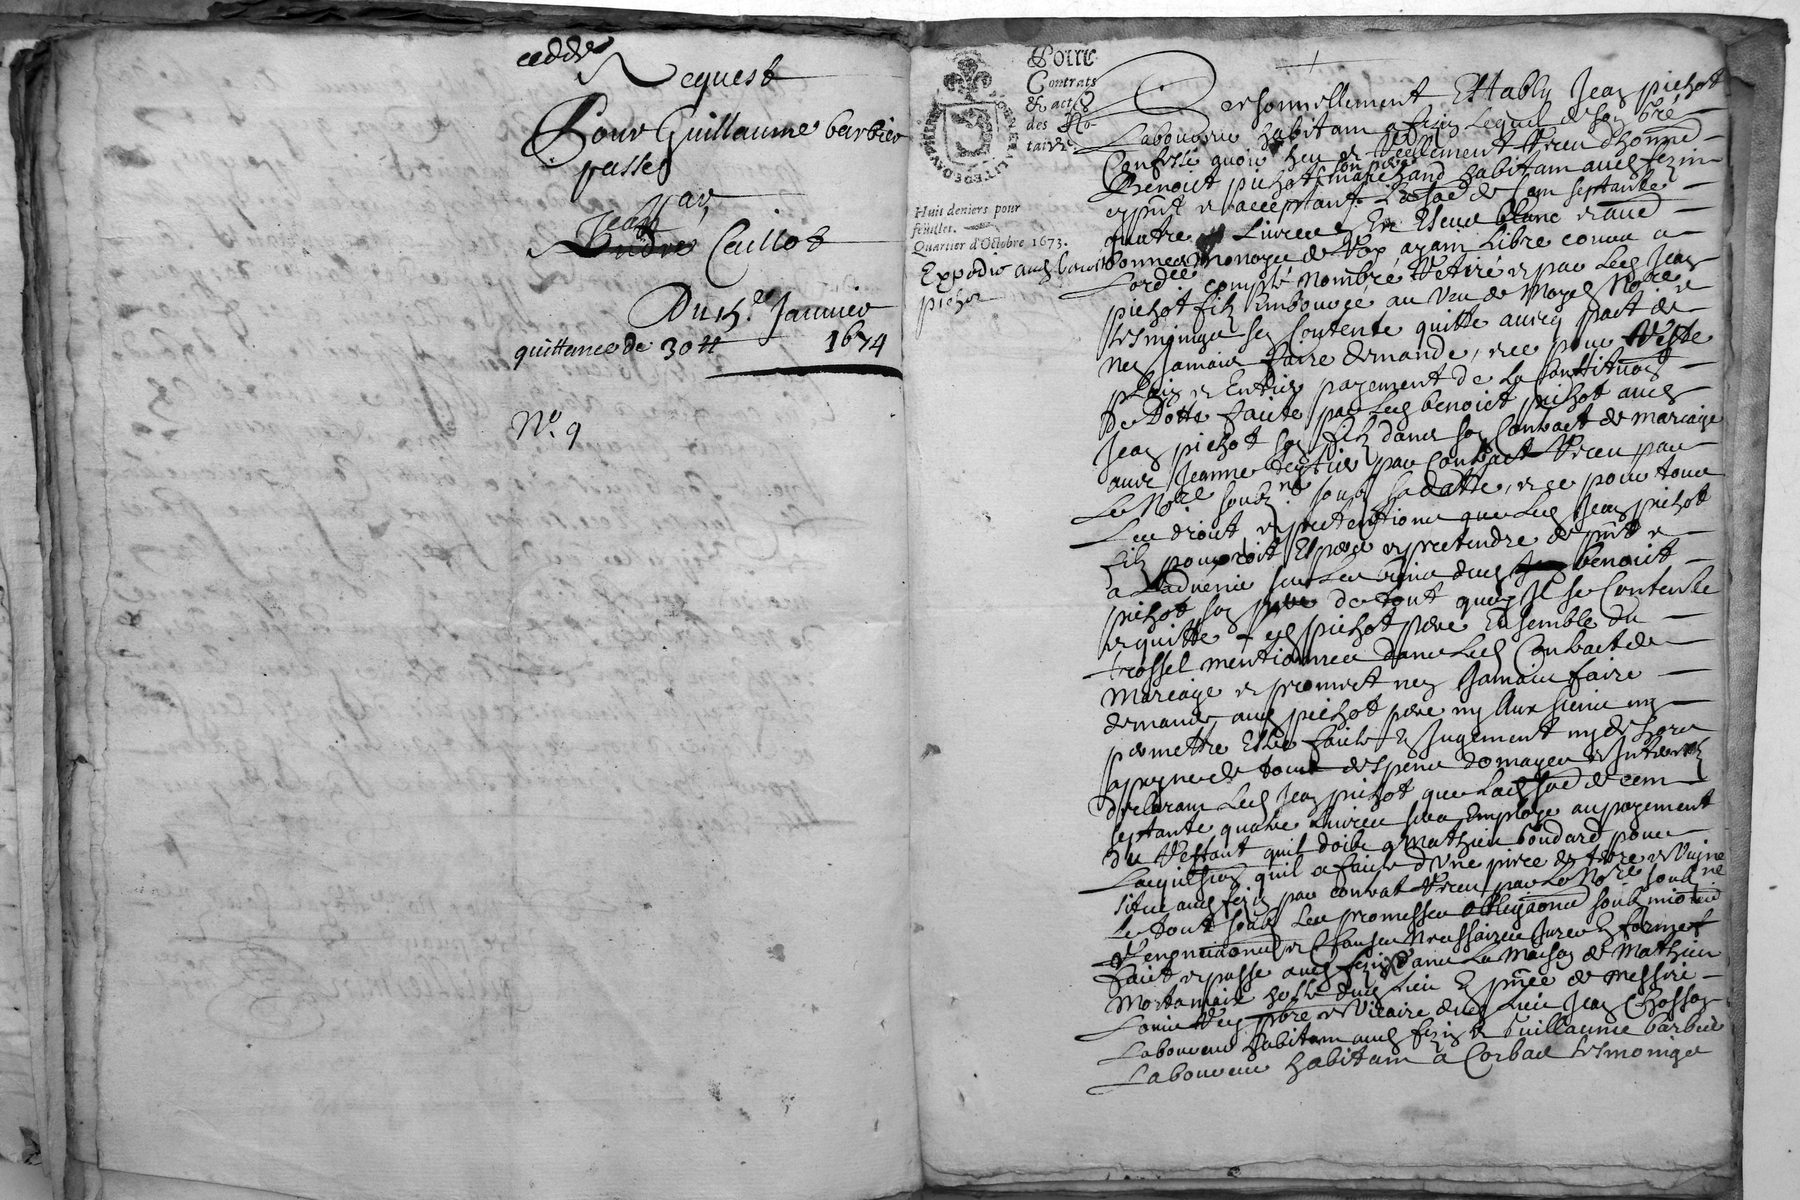 cedde
Request
Pour Guillaume barbier
passe
par
Jean
Caillot
Du 14.e Janvier
1674
quittance de 30 tt
No. 9
GENERALITE DE DAUPHINE
Pour
Contrats
& actes
des No-
taires
Huit deniers pour
feuillet.
Quartier d'Octobre 1673.
Expedie aud benoict
pichot
Personnellement Estably Jean pichot
Laboureur habitant a fezin Lequel de son gre
Confesse avoir heu et reellement Receu dhonne
Benoict pichot son pere marchand habitant aud fezin
et acceptant La so.e de Cent septante
quatre Livres En Escus blanc et aud
bonne monoye de Roy ayant Libre cours a
Lord.ee compté nombré Retiré et par Led Jean
pichot filz Emboursé au veu de Moyd No.re et
tesmoings sen Contente quitte avecq pact de
nen Jamais faire demande, et ce pour Reste
plain et Entier payement de La Constitu.on
De Dotte faicte par Led benoict pichot aud
Jean pichot son filz dans son Contract de mariage
avec Jeanne par Contract Receu par
Le No.re soubz.ne soubz sa datte, et ce pour tous
Les droict et pretentions que Led Jean pichot
filz pourroit Esperer et pretendre de p.nt et
a Ladvenir sur Les biens dud benoict
pichot son pere de tout quoy Il se Contente
et quitte led pichot pere Ensemble du
trossel mentionné dans Led Contract de
Mariage et promect nen Jamais faire
demande aud pichot pere ny Aux siens ny
permettre Estre faicte En Jugement ny dehors
a peyne de tous despens domages et Interestz
declarant Led Jean pichot que Lad so.e de cent
septante quatre Livres sera Employé au payement
du Restant quil doibt a Mathieu boudard pour
Lacquisi.on quil a faicte dune piece de terre et vigne
situé aud fezin par contrat Receu par Le No.re soubz.ne
Le tout soubz Les promesses obliga.ons soubmi.ons
Renoncia.ons et Clauses necessaires Jurée En forme
faict et passe aud fezin dans La Maison de Mathieu
hoste dud Lieu En p.nce de Messire
Louis pb.re et vicaire dud Lieu Jean Chosson
Laboureur habitant aud fezin et Guillaume barbier
Laboureur habitant a Corbas tesmoings